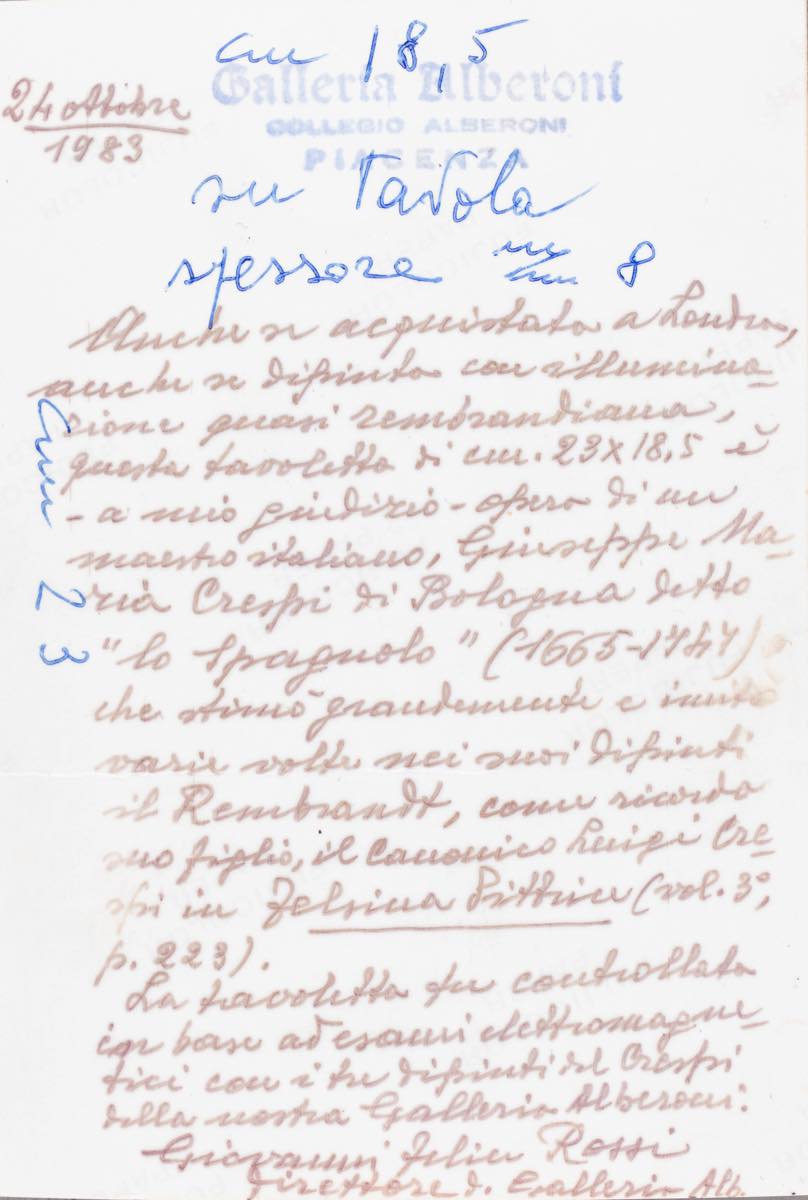 cm 18,5
Galleria Alberoni
COLLEGIO ALBERONI
PIACENZA
24 ottobre
1983
su Tavola
spessore mm 8
cm 23
Anche se acquistata a Londra,
anche se dipinta con illumina-
zione quasi rembrandiana,
questa tavoletta di cm. 23x18,5 è
- a mio giudizio - opera di un
maestro italiano, Giuseppe Ma-
ria Crespi di Bologna detto
"lo Spagnolo" (1665-1747)
che stimò grandemente e imitò
varie volte nei suoi dipinti
il Rembrandt, come ricorda
suo figlio, il Canonico Luigi Cre-
spi in Felsina Pittrice (vol. 3°,
p. 223).
La tavoletta fu controllata
in base ad esami elettromagne-
tici con i tre dipinti del Crespi
della nostra Galleria Alberoni.
Giovanni Felice Rossi
Direttore d. Galleria Alb.